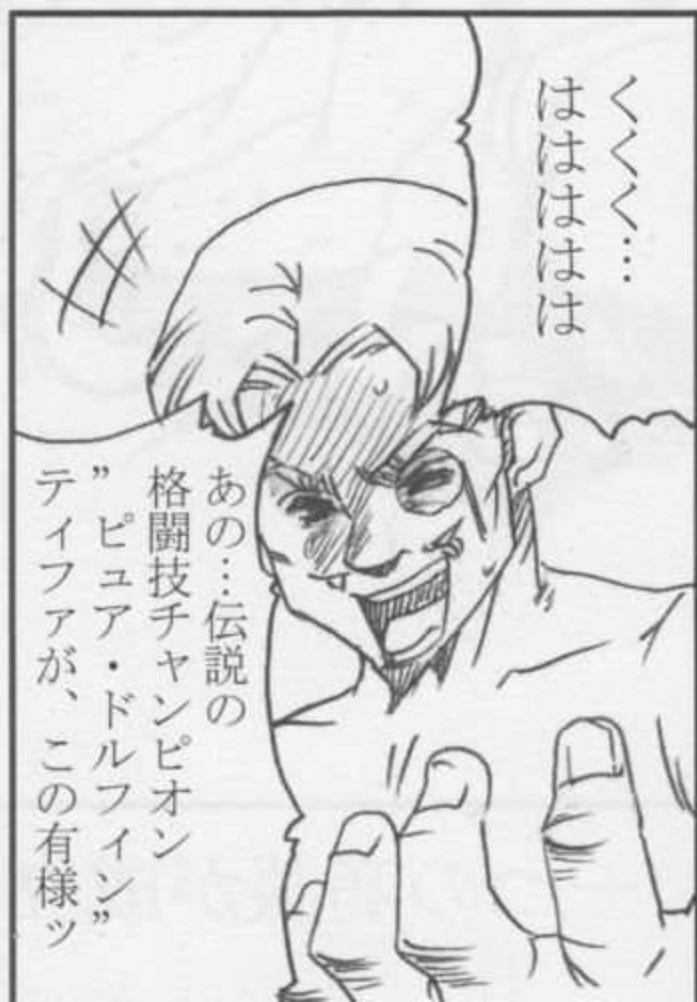 くくく…
はははははは
あの…伝説の
格闘技チャンピオン
”ピュア・ドルフィン”
ティファが、この有様ッ